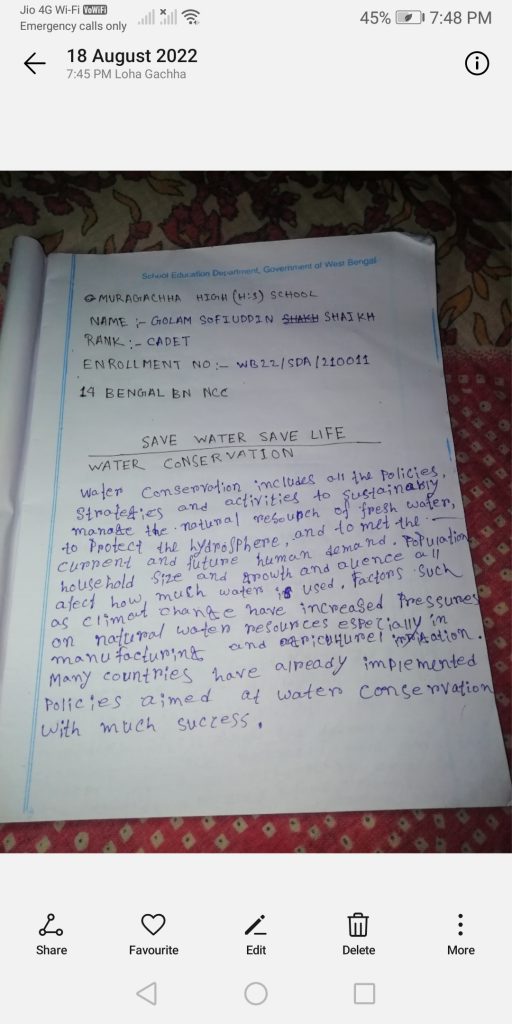 Jio 4G Wi-Fi VoWiFi
Emergency calls only
45% 7:48 PM
18 August 2022
7:45 PM Loha Gachha
School Education Department, Government of West Bengal
MURAGACHHA HIGH (H:S) SCHOOL
NAME :- GOLAM SOFIUDDIN SHAKH SHAIKH
RANK :- CADET
ENROLLMENT NO :- WB22/SDA/210011
14 BENGAL BN NCC
SAVE WATER SAVE LIFE
WATER CONSERVATION
Water Conservation includes all the Policies,
Strategies and activities to sustainably
manage the natural of fresh water,
to Protect the hydrosphere, and to met the
current and future human demand. Population
household size and growth and all
afect how much water is used. Factors such
as climat change have increased Pressures
on natural water resources especially in
manufacturing and
Many countries have already implemented
Policies aimed at water conservation
with much success.
Share
Favourite
Edit
Delete
More